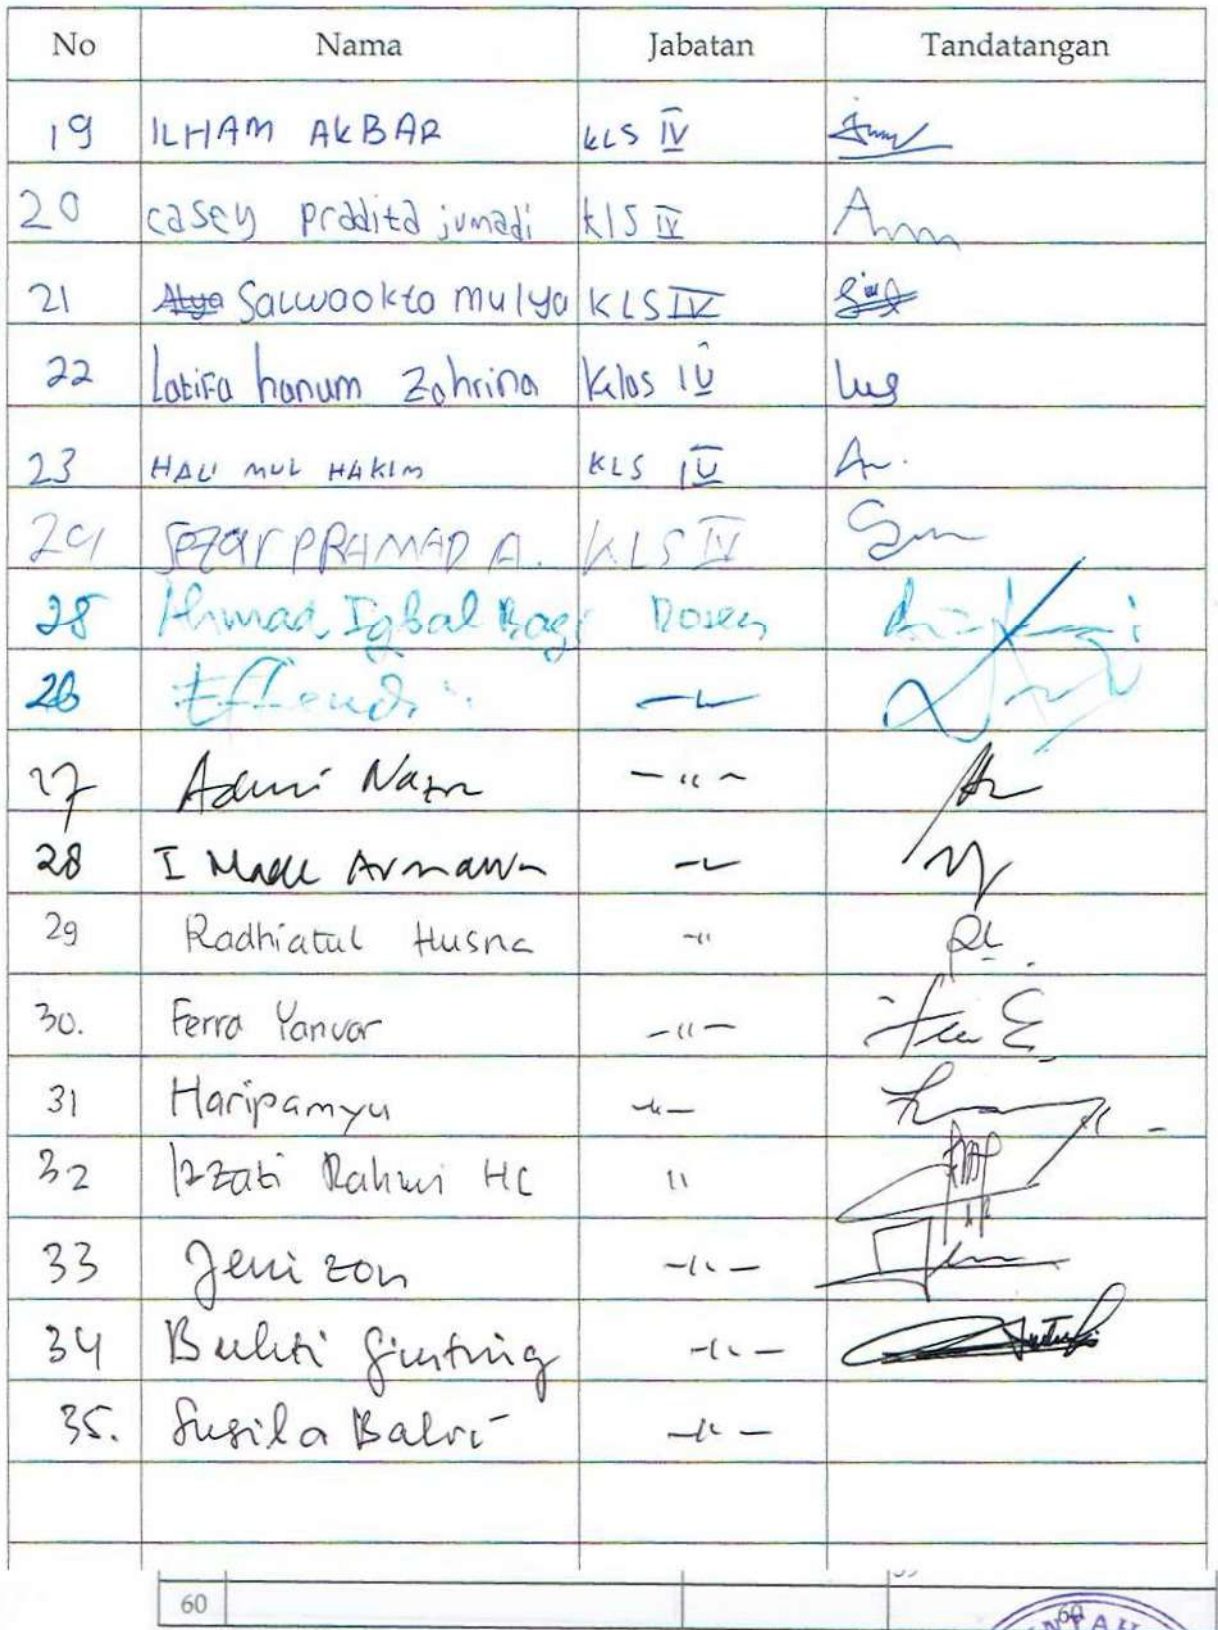 No Nama Jabatan Tandatangan
19 ILHAM AKBAR KLS IV
20 casey pradita jumadi klS IV
21 Salwaokta mulya KLS IV
22 Latifa hanum Zahrina Kelas IV
23 HALI MUL HAKIM KLS IV
24 SEZAR PRAMAD A. KLS IV
25 Ahmad Iqbal Baqi Dosen
26 Effendi
27 Admi Nazra — 〃 —
28 I Made Arnawa
29 Radhiatul Husna -〃
30. Ferra Yanuar — 〃 —
31 Haripamyu — 〃 —
32 Izzati Rahmi HG 〃
33 Jenizon — 〃 —
34 Bukti Ginting — 〃 —
35. Susila Bahri — 〃 —
60
60